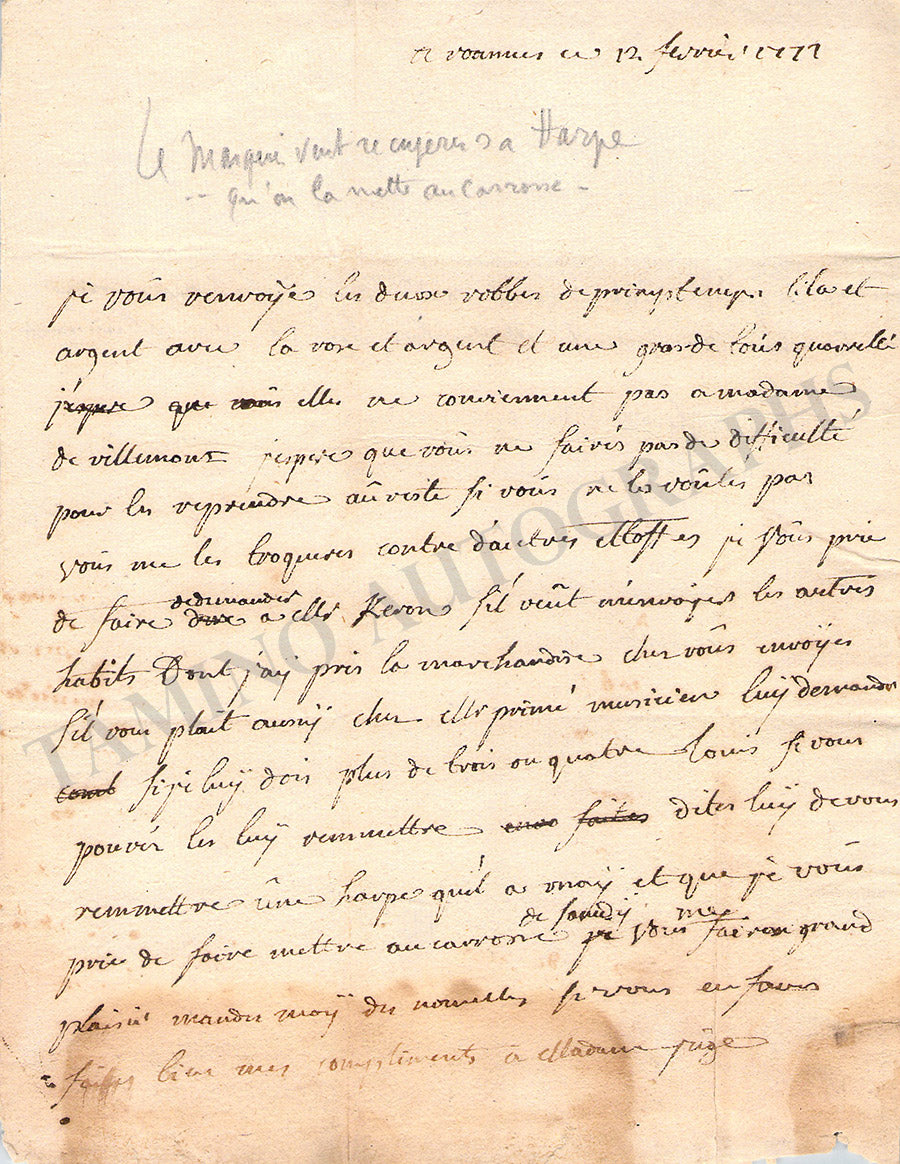 a vannes ce 12 fevrier 1777
Le Marquis veut recuperer sa Harpe
-- qu'on la mette au carrosse -
je voüs renvoÿe les deux robbes de printemps lila et
argent avec la rose et argent et une grande
j'espere que elles ne conviennent pas a madame
de villemont j'espere que voüs ne fairés pas de difficulté
pour les reprendre aüreste si voüs ne les voülés pas
voüs me les troquerés contre d'autres etoffes je voüs prie
de faire demander a Mr Keron s'il veüt m'envoÿer les autres
habits Dont j'aÿ pris la marchandise chez voüs envoÿés
s'il vous plait aussÿ chez Mr primé musicien luÿ demander
si je luÿ dois plus de trois ou quatre Louis si vous
pouvés les luÿ remmettre faites dites luÿ de vous
remmettre üne harpe qu'il a a moÿ et que je voüs
prie de faire mettre au carrosse de samdÿ je vous me grand
plaisir mandés moÿ des nouvelles si vous en
faites bien mes compliments a Madame
TAMINO AUTOGRAPHS